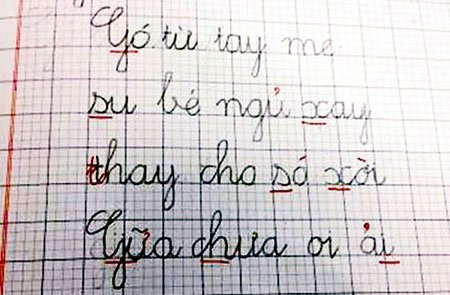 Gó từ tay me
su bé ngủ xay
thay cho só xời
Gjữa chưa oi ải